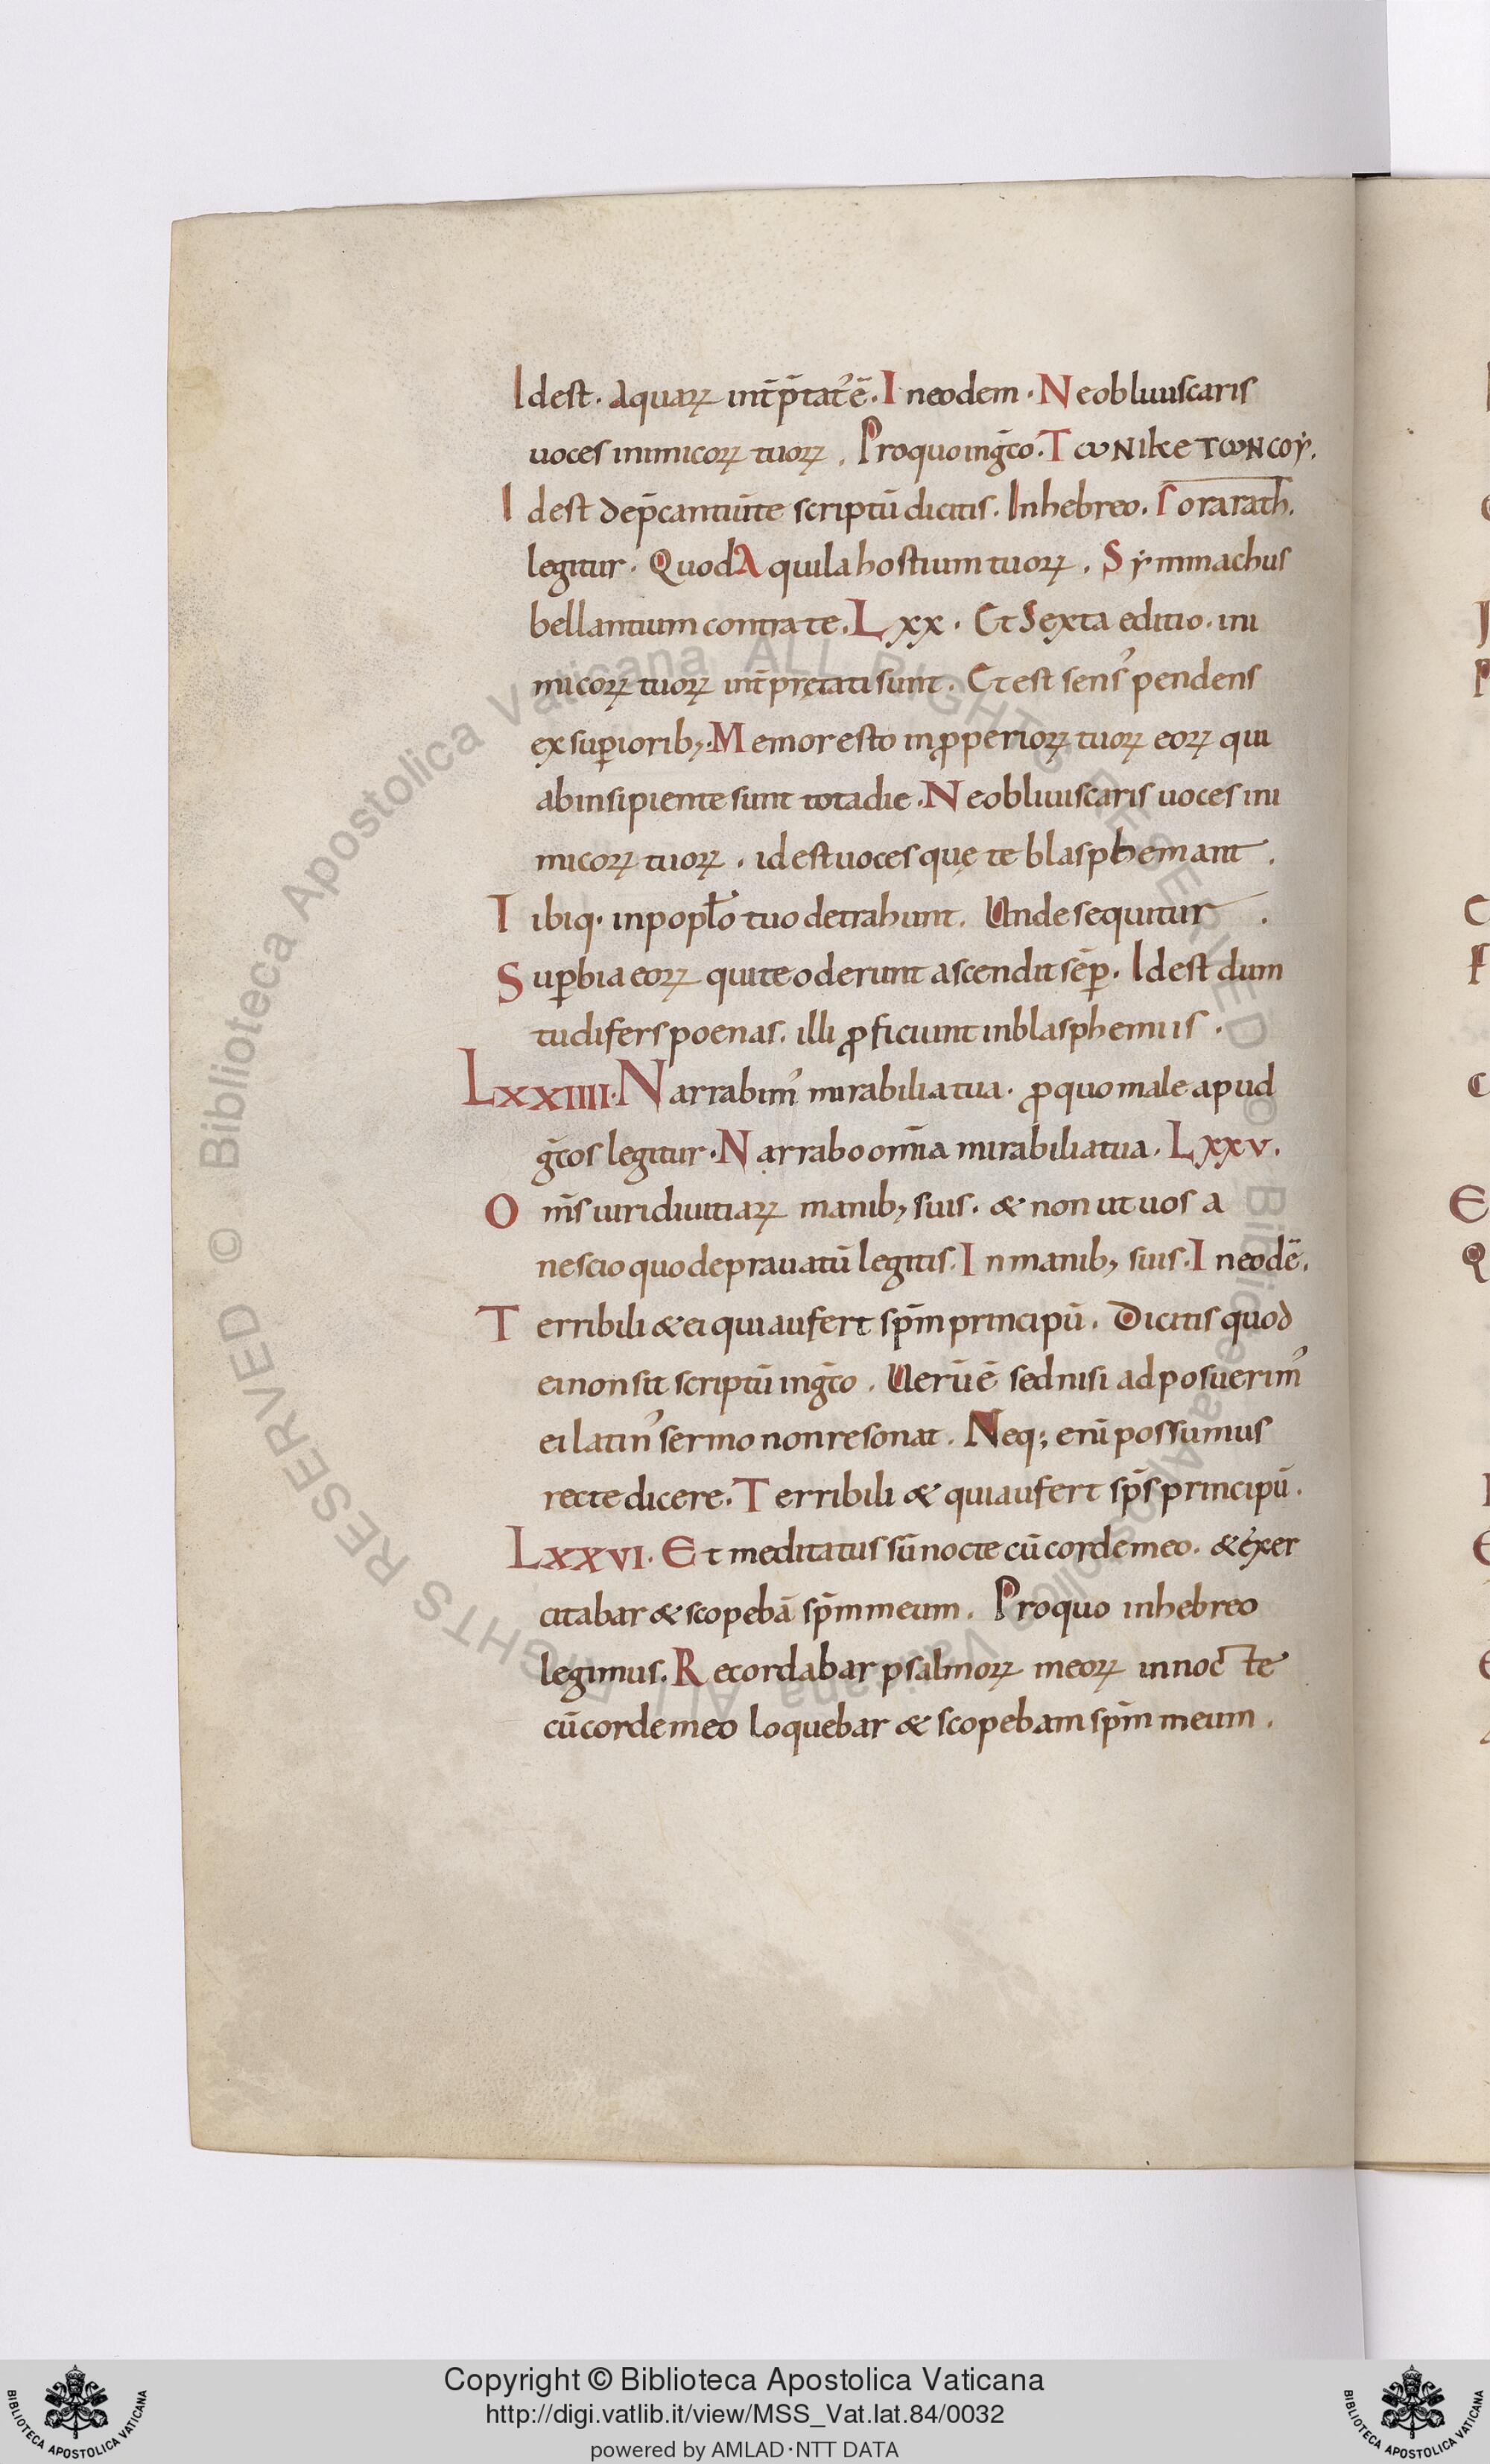 Idest. aquarꝝ int̄p̄tat᾿ē. In eodem. Neobliuiscaris
uoces inimicorꝝ tuorꝝ. Proquo ingr̄co. TωNIKETωNCOY.
Idest dep̄cantiū te scriptū dicitis. Inhebreo. Sorarath.
legitur. Quod Aquila hostium tuorꝝ. Symmachus
bellantium contra te. Lxx. Et Sexta editio. ini
micorꝝ tuorꝝ int̄pretati sunt. Et est sens᾿ pendens
ex suꝑiorib; Memoresto inꝓperiorꝝ tuorꝝ eorꝝ qui
abinsipiente sunt tota die. Neobliuiscaris uoces ini
micorꝝ tuorꝝ. idest uoces quę te blasphemant.
Tibiq. inpopl̄o tuo detrahunt. Unde sequitur.
Suꝑbia eorꝝ qui te oderunt ascendit sēꝑ. Idest dum
tu difers poenas. illi ꝓficiunt in blasphemiis.
Lxxiiii. Narrabim᾿ mirabilia tua. ꝓquo male apud
gr̄cos legitur. Narrabo om̄ia mirabilia tua. Lxxv.
Om̄s uiri diuitiarꝝ manib; suis. & non ut uos a
nescio quo deprauatū legitis. In manib; suis. In eodē.
Terribili & ei qui aufert sp̄m principū. Dicitis quod
ei non sit scriptū ingr̄co. Uerū ē sed nisi adposuerim᾿
ei latin᾿ sermo non resonat. Neq; enī possumus
recte dicere. Terribili & qui aufert sp̄s principū.
Lxxvi. Et meditatus sū nocte cū corde meo. & exer
citabar & scopebā sp̄m meum. Proquo inhebreo
legimus. Recordabar psalmorꝝ meorꝝ in noc̄te
cū corde meo loquebar & scopebam sp̄m meum.
Biblioteca Apostolica Vaticana ALL RIGHTS RESERVED ©
Copyright © Biblioteca Apostolica Vaticana
http://digi.vatlib.it/view/MSS_Vat.lat.84/0032
powered by AMLAD·NTT DATA
BIBLIOTECA APOSTOLICA VATICANA
BIBLIOTECA APOSTOLICA VATICANA